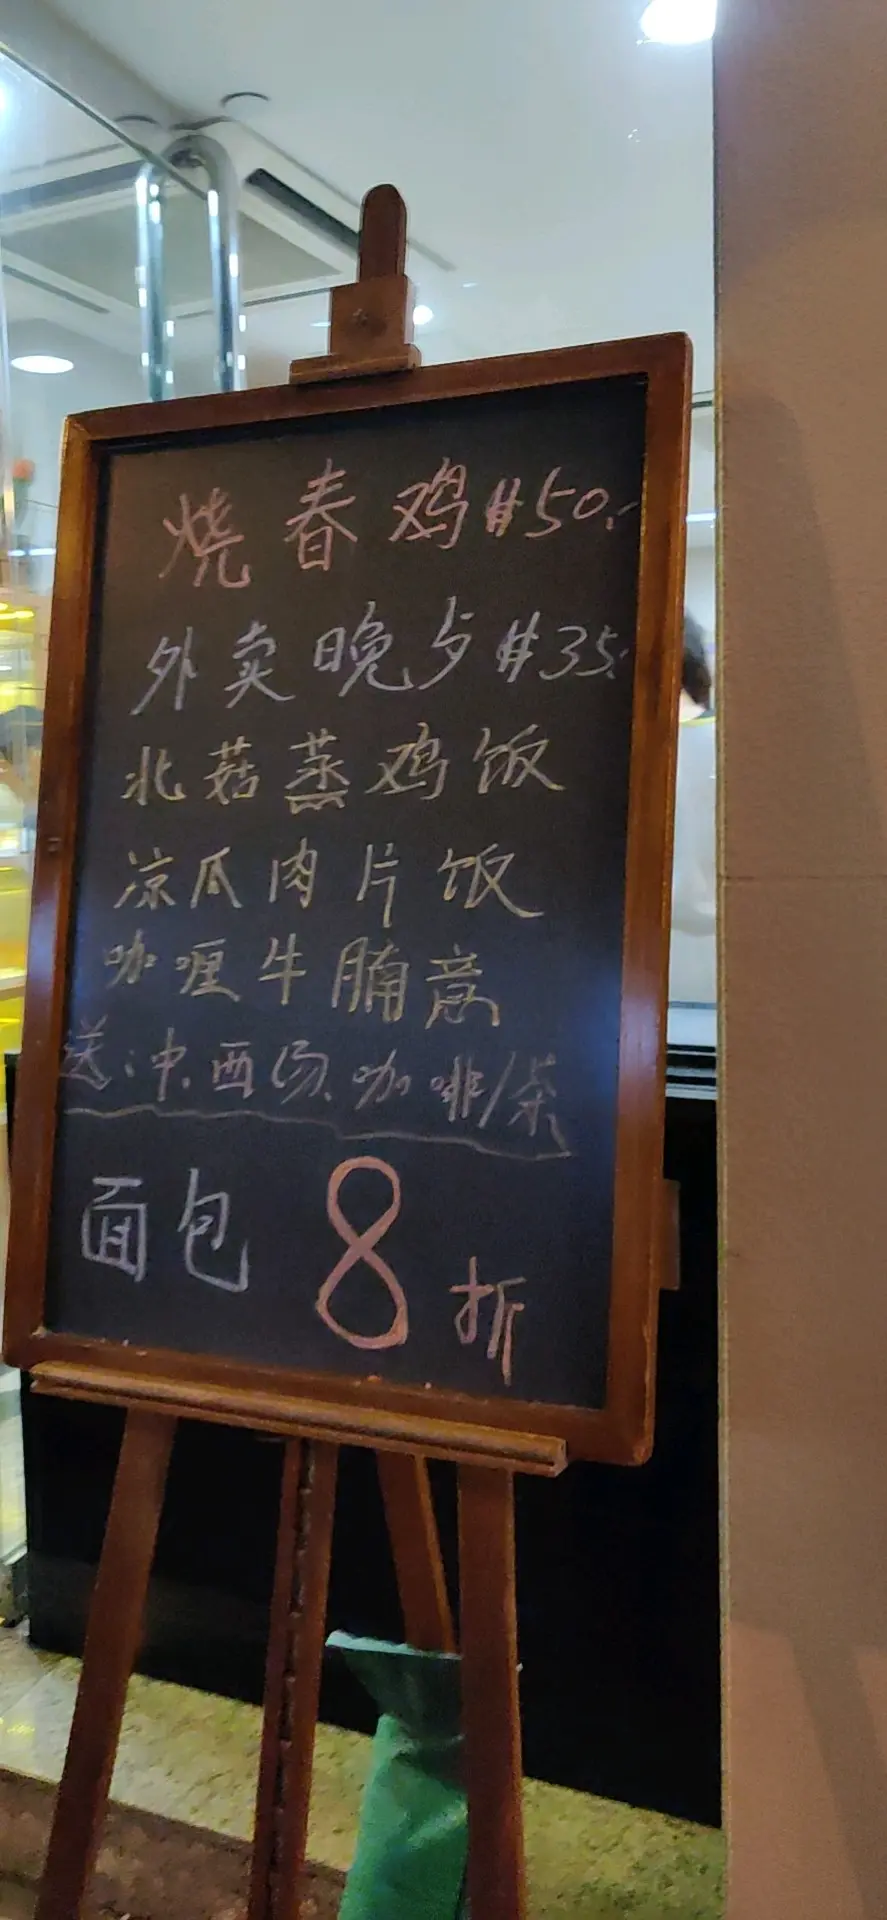 烧春鸡$50.-
外卖晚歺$35.-
北菇蒸鸡饭
凉瓜肉片饭
咖喱牛腩意
送:中.西汤.咖啡/茶
面包 8折